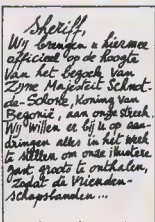 Sheriff,
Wij brengen u hiermee
officieel op de hoogte
van het bezoek van
Zijne Majesteit Schnot-
de-Schose, Koning van
Begonië, aan onze streek.
Wij willen er bij u op aan-
dringen alles in het werk
te stellen om onze illustere
gast groots te onthalen,
zodat de vrienden-
schapsbanden...